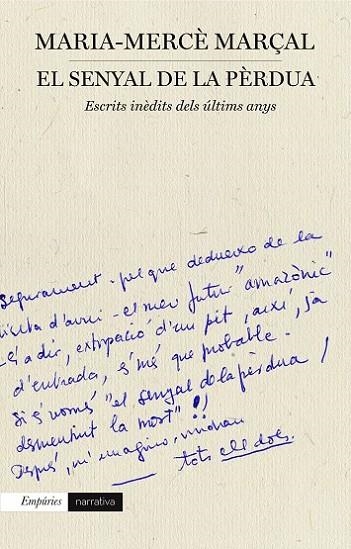 MARIA-MERCÈ MARÇAL
EL SENYAL DE LA PÈRDUA
Escrits inèdits dels últims anys
Segurament - pel que dedueixo de la
visita d'avui - el meu futur "amazònic"
és a dir, extirpació d'un pit, així, ja
d'entrada, és més que probable.
Si és només "el senyal de la pèrdua /
desmentint la mort"!!)
Després, m'imagino, vindran
tots ells dols.
Empúries
narrativa